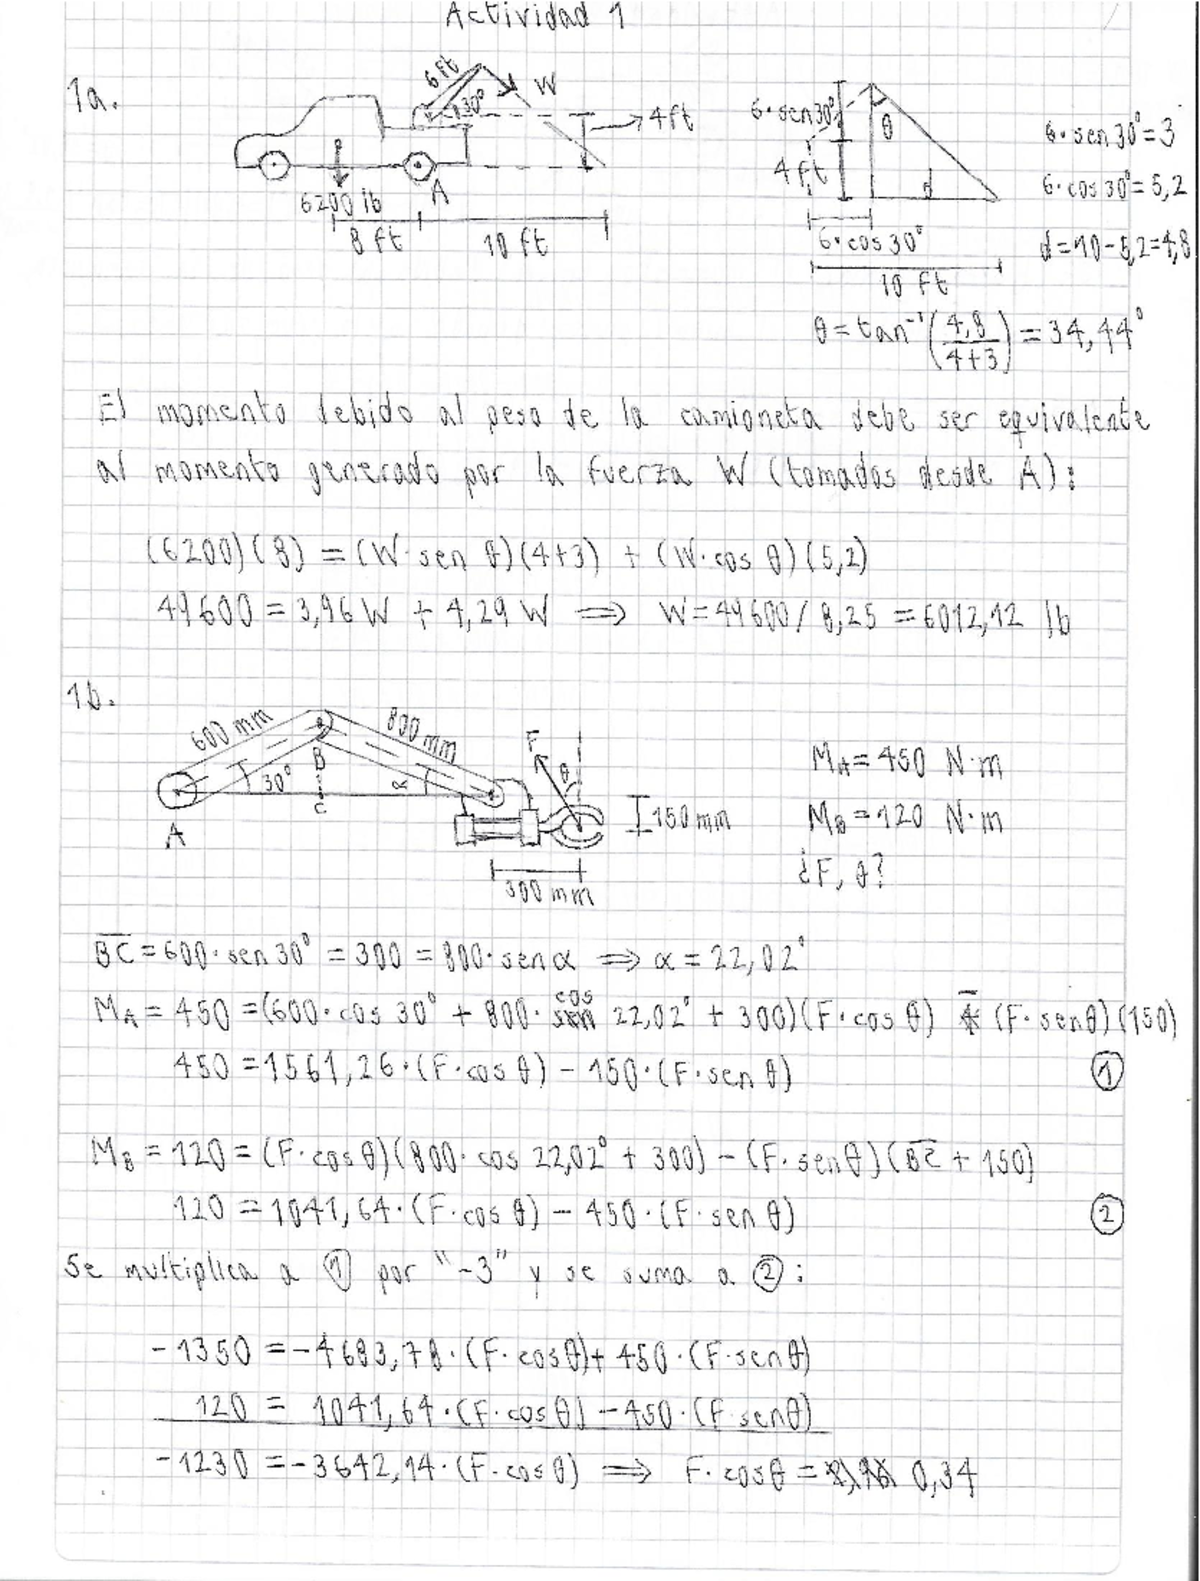 Actividad 1
1a.
6 ft
30°
W
4 ft
6200 lb
A
8 ft
10 ft
6·sen30°
θ
4 ft
d
6·cos 30°
10 ft
6·sen 30° = 3
6·cos 30° = 5,2
d = 10 - 5,2 = 4,8
θ = tan⁻¹(4,8/4+3) = 34,44°
El momento debido al peso de la camioneta debe ser equivalente
al momento generado por la fuerza W (tomados desde A):
(6200)(8) = (W·sen θ)(4+3) + (W·cos θ)(5,2)
49600 = 3,96 W + 4,29 W ⟹ W = 49600 / 8,25 = 6012,12 lb
1b.
600 mm
800 mm
B
30°
C
α
A
F
θ
150 mm
300 mm
M_A = 450 N·m
M_B = 120 N·m
¿F, θ?
BC = 600·sen 30° = 300 = 800·sen α ⟹ α = 22,02°
M_A = 450 = (600·cos 30° + 800·cos 22,02° + 300)(F·cos θ) - (F·sen θ)(150)
450 = 1561,26·(F·cos θ) - 150·(F·sen θ) ①
M_B = 120 = (F·cos θ)(800·cos 22,02° + 300) - (F·sen θ)(BC + 150)
120 = 1041,64·(F·cos θ) - 450·(F·sen θ) ②
Se multiplica a ① por "-3" y se suma a ②:
-1350 = -4683,78·(F·cos θ) + 450·(F·sen θ)
120 = 1041,64·(F·cos θ) - 450·(F·sen θ)
-1230 = -3642,14·(F·cos θ) ⟹ F·cos θ = 0,34